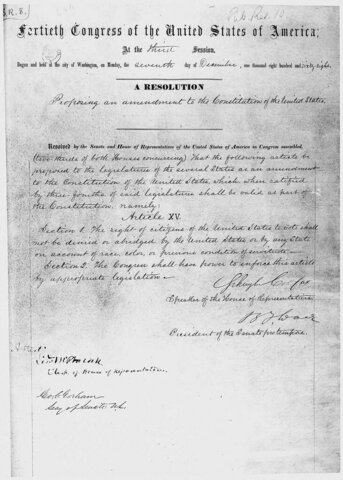 R. 8.
Pub. Res 10
Fortieth Congress of the United States of America;
At the third Session,
Begun and held at the city of Washington, on Monday, the seventh day of December, one thousand eight hundred and sixty-eight.
A RESOLUTION
Proposing an amendment to the Constitution of the United States.
Resolved by the Senate and House of Representatives of the United States of America in Congress assembled,
(two-thirds of both Houses concurring) That the following article be
proposed to the legislatures of the several States as an amendment
to the Constitution of the United States which when ratified
by three-fourths of said legislatures shall be valid as part of
the Constitution, namely:
Article XV.
Section 1. The right of citizens of the United States to vote shall
not be denied or abridged by the United States or by any State
on account of race, color, or previous condition of servitude—
Section 2. The Congress shall have power to enforce this article
by appropriate legislation—
Schuyler Colfax
Speaker of the House of Representatives.
B F Wade
President of the Senate pro tempore.
Attest:
Clerk of House of Representatives.
Geo C Gorham
Secy of Senate U.S.